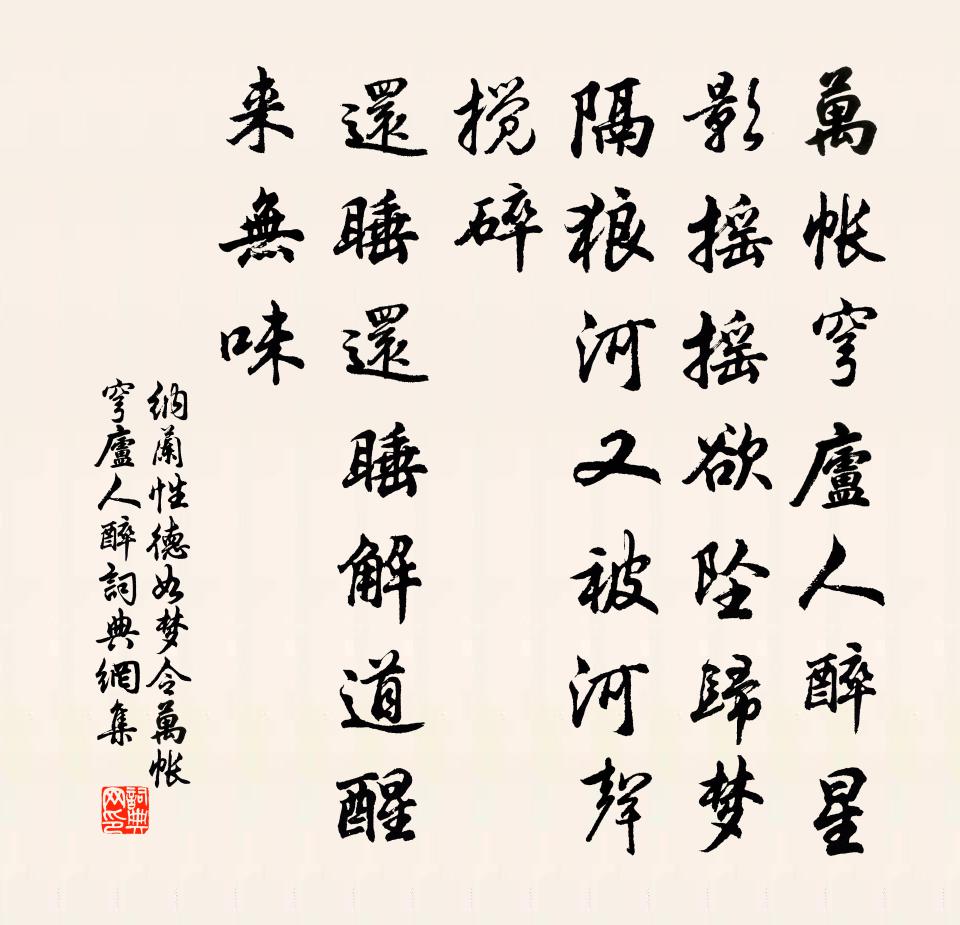 萬帳穹廬人醉星
影摇摇欲坠歸梦
隔狼河又被河聲
搅碎
還睡還睡解道醒
来無味
納蘭性德如梦令萬帐
穹廬人醉詞典網集
詞典
网印